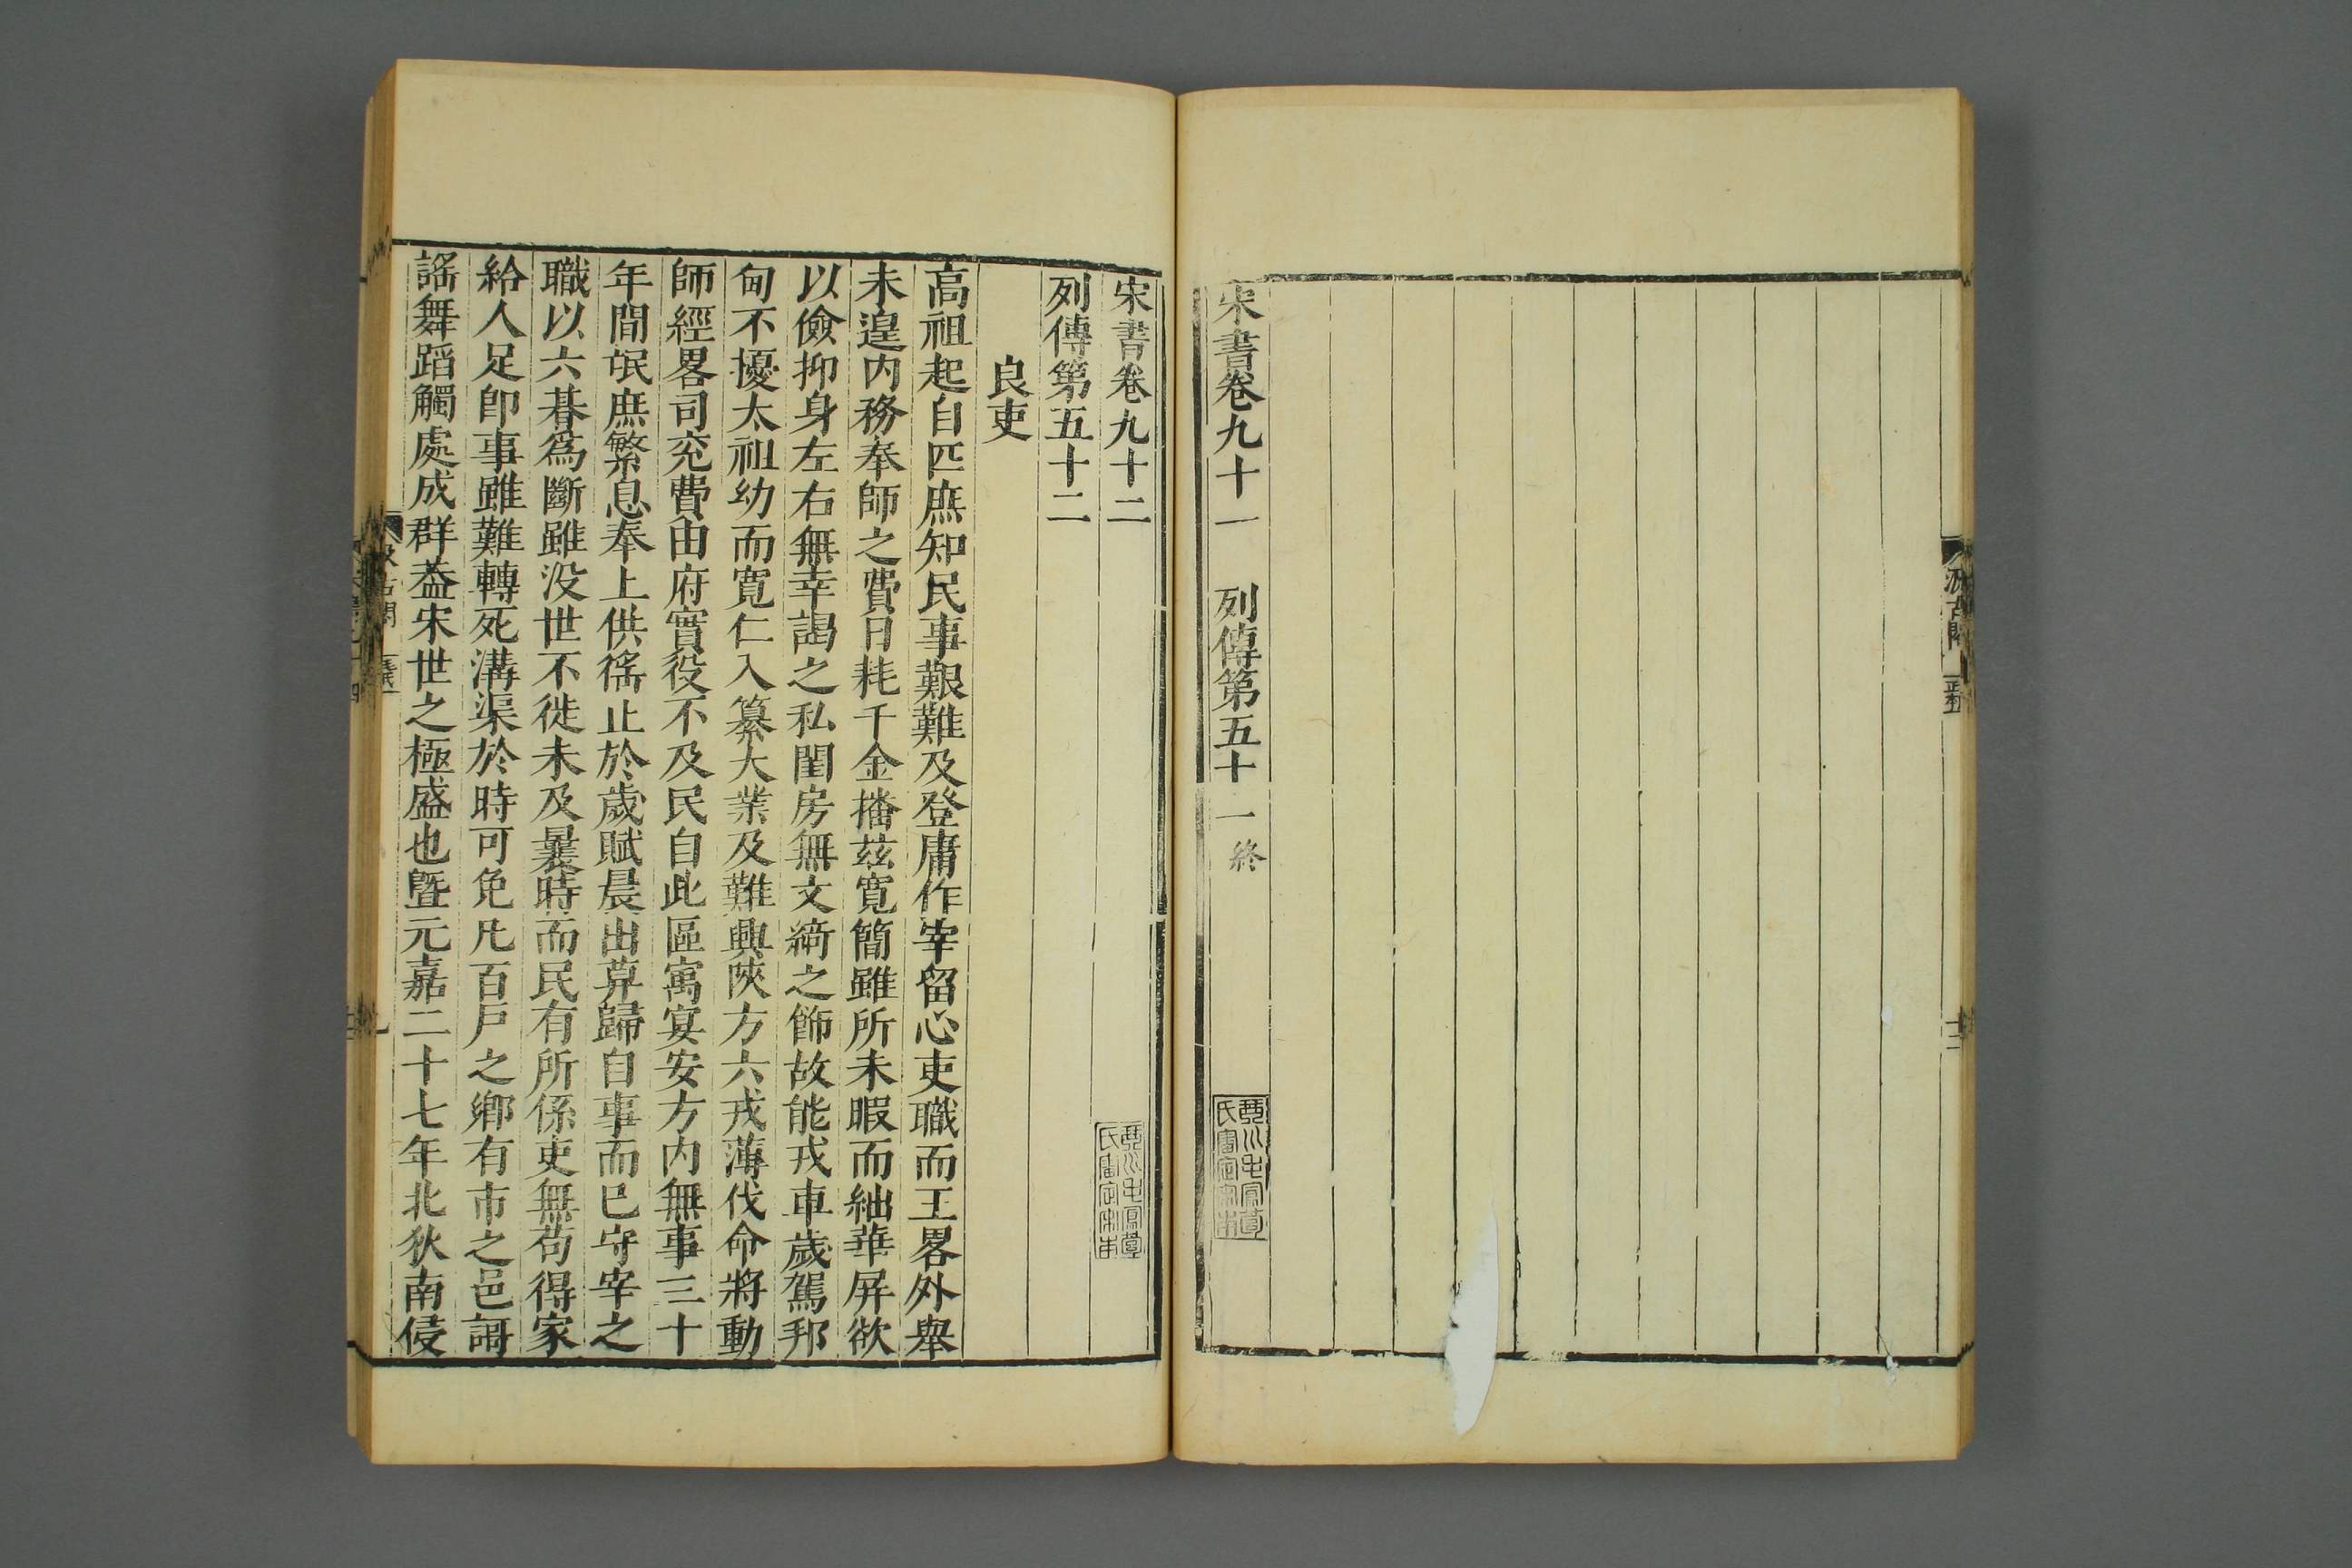 宋書卷九十一　列傳第五十一終
宋書卷九十二
列傳第五十二
良吏
高祖起自匹庶知民事艱難及登庸作宰留心吏職而王畧外舉
未遑内務奉師之費日耗千金播茲寛簡雖所未暇而紬華屏欲
以儉抑身左右無幸謁之私閨房無文綺之飾故能戎車歲駕邦
甸不擾太祖幼而寛仁入纂大業及難興陝方六戎薄伐命將動
師經畧司兖費由府實役不及民自此區寓宴安方内無事三十
年間氓庶繁息奉上供徭止於歲賦晨出莫歸自事而已守宰之
職以六朞爲斷雖没世不徙未及曩時而民有所係吏無苟得家
給人足卽事雖難轉死溝渠於時可免凡百戶之鄉有市之邑謌
謠舞蹈觸處成群葢宋世之極盛也曁元嘉二十七年北狄南侵